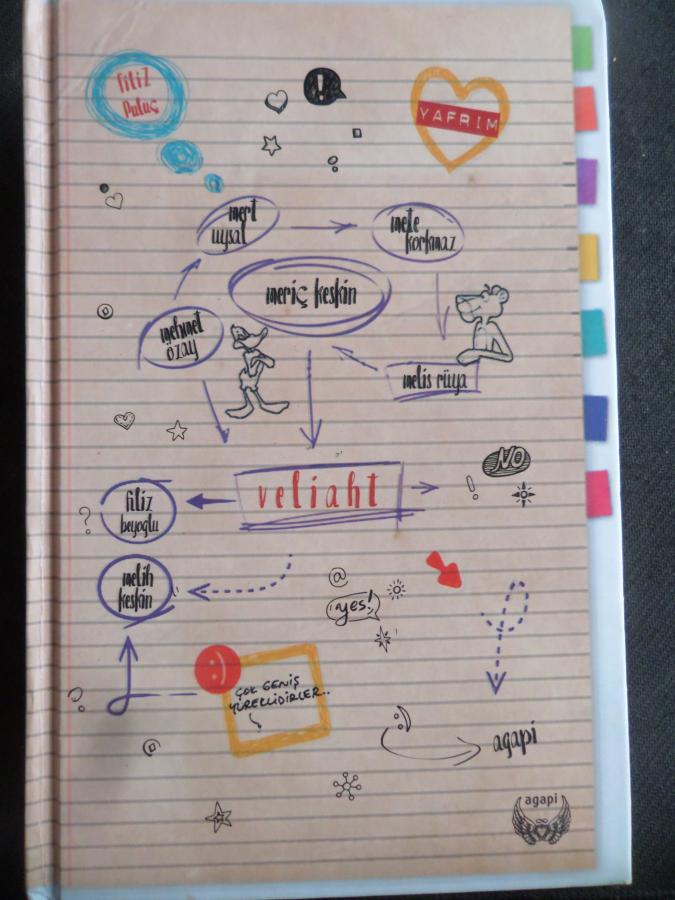 filiz
puluç
!
YAFRIM
mert
uysal
mete
korkmaz
meriç keskin
mehmet
özay
melis rüya
NO
veliaht
!
filiz
beyoglu
?
@
melih
keskin
yes!
ÇOK GENİŞ
YÜREKLİDİRLER..
?
@
agapi
agapi